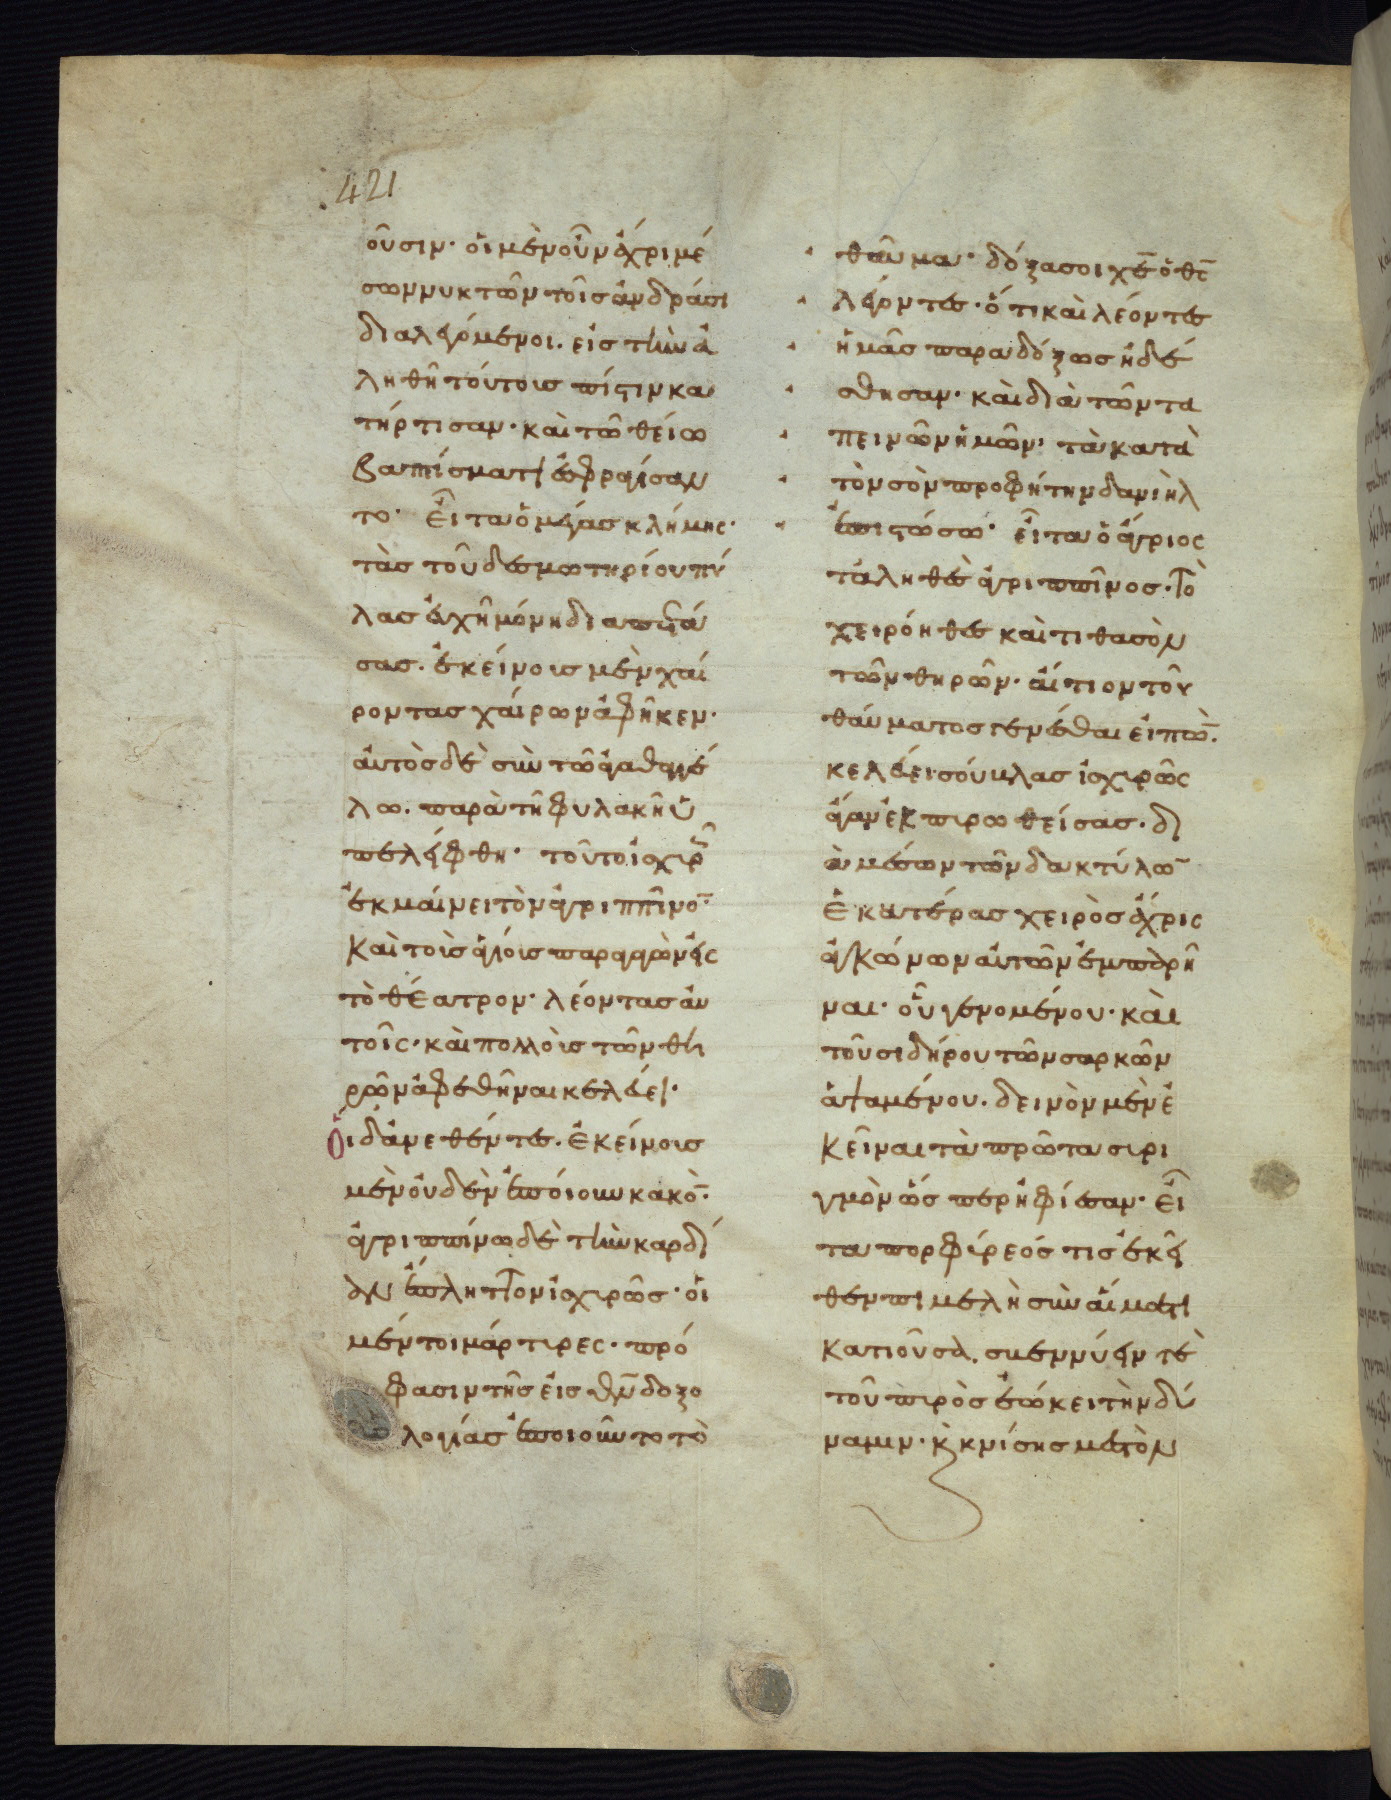 421
οῦσιν· οἱ μὲν οὖν ἄχρι μέ
σων νυκτῶν τοῖς ἀνδράσι
διαλεγόμενοι. εἰς τὴν ἀ
ληθῆ τούτοις πίστιν κα
τήρτισαν· καὶ τῶ θείω
βαπτίσματι ἐσφραγίσαν
το· Εἶτα ὁ μέγας κλήμης·
τὰς τοῦ δεσμωτηρίου πύ
λας εὐχῆ μόνη διαπετά
σας. ἐκείνοις μὲν χαί
ροντας χαίρων ἀφῆκεν·
αὐτὸς δὲ σὺν τῶ ἀγαθαγγέ
λω. παρὰ τῆ φυλακῆ ὑ
πελείφθη· τοῦτο ἰσχυρῶς
ἐκμαίνει τὸν ἀγριππῖνο̄·
καὶ τοὺς ἁγίους παραγαγὼν εἰς
τὸ θέατρον· λέοντας αὐ
τοῖς· καὶ πολλοὺς τῶν θη
ρῶν ἀφεθῆναι κελεύει·
Οἱ δὲ ἀνεθέντες. ἐκείνοις
μὲν οὐδὲν ἐποίουν κακό̄·
ἀγριππίνω δὲ τὴν καρδί
αν ἔπληττον ἰσχυρῶς· οἱ
μέντοι μάρτυρες· πρό
φασιν τῆς εἰς θν̄ δοξο
λογίας ἐποιοῦντο τὸ
θαῦμα· δόξα σοι χε̄ ὁ θς̄
λέγοντες· ὅτι καὶ λέοντες
ἡμᾶς παραδόξως ἠδέ
σθησαν· καὶ διὰ τῶν τα
πεινῶν ἡμῶν· τὰ κατὰ
τὸν σὸν προφήτην δανιὴλ
ἐπιστώσω· εἶτα ὁ ἄγριος
τἀληθὲς ἀγριππῖνος· Τὸ
χειρόηθες καὶ τιθασὸν
τῶν θηρῶν· αἴτιον τοῦ
θαύματος γενέσθαι εἰπώ̄·
κελεύει σούβλας ἰσχυρῶς
ἄγαν ἐκπυρωθείσας· δι
ὰ μέσων τῶν δακτύλω̄
ἑκατέρας χειρὸς ἄχρις
ἀγκώνων αὐτῶν ἐμπαρῆ
ναι· οὗ γενομένου· καὶ
τοῦ σιδήρου τῶν σαρκῶν
ἁψαμένου. δεινὸν μὲν ἐ
κεῖναι τὰ πρῶτα συρι
γμὸν ὥσπερ ἠφίεσαν· εἶ
τα πορφύρεός τις ἐκεῖ
θεν πιμελὴ σὺν αἵματι
κατιοῦσα. σβεννύειν τὲ
τοῦ πυρὸς ἐώκει τὴν δύ
ναμιν· κ κνίσης μεστὸν